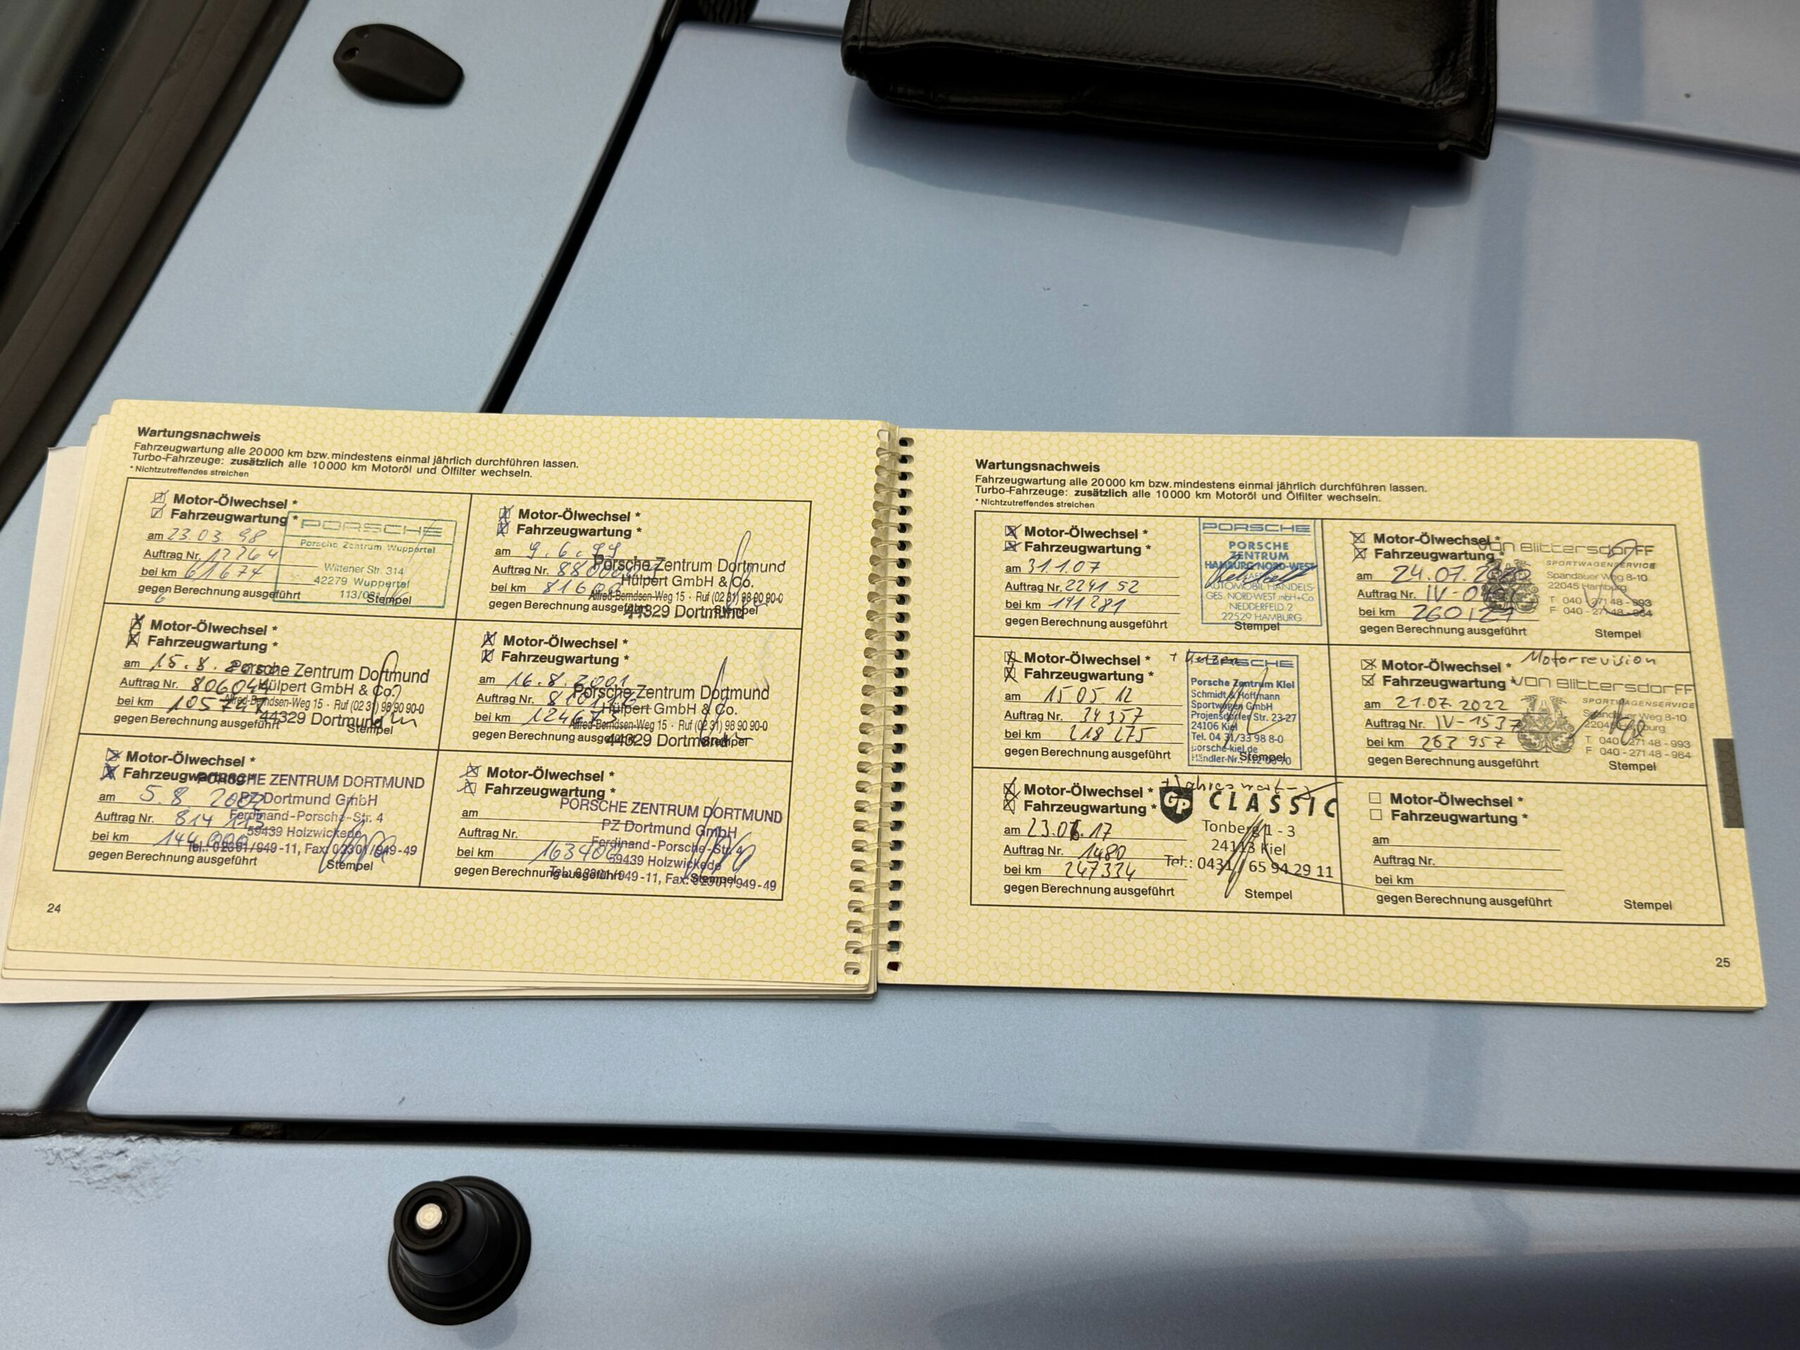 Wartungsnachweis
Fahrzeugwartung alle 20000 km bzw. mindestens einmal jährlich durchführen lassen.
Turbo-Fahrzeuge: zusätzlich alle 10000 km Motoröl und Ölfilter wechseln.
* Nichtzutreffendes streichen
Motor-Ölwechsel *
Fahrzeugwartung *
am 23.03.98
Auftrag Nr. 17764
bei km 61674
gegen Berechnung ausgeführt
Stempel
PORSCHE
Porsche Zentrum Wuppertal
Wittener Str. 314
42279 Wuppertal
Motor-Ölwechsel *
Fahrzeugwartung *
am 9.6.99
Auftrag Nr.
bei km
gegen Berechnung ausgeführt
Stempel
Porsche Zentrum Dortmund
Hülpert GmbH & Co.
Alfred-Berndsen-Weg 15 · Ruf (02 31) 98 90 90-0
44329 Dortmund
Motor-Ölwechsel *
Fahrzeugwartung *
am 15.8.
Auftrag Nr. 806044
bei km
gegen Berechnung ausgeführt
Stempel
Porsche Zentrum Dortmund
Hülpert GmbH & Co.
Alfred-Berndsen-Weg 15 · Ruf (02 31) 98 90 90-0
44329 Dortmund
Motor-Ölwechsel *
Fahrzeugwartung *
am 16.8.2001
Auftrag Nr.
bei km
gegen Berechnung ausgeführt
Stempel
Porsche Zentrum Dortmund
Hülpert GmbH & Co.
Alfred-Berndsen-Weg 15 · Ruf (02 31) 98 90 90-0
44329 Dortmund
Motor-Ölwechsel *
Fahrzeugwartung *
am 5.8 2002
Auftrag Nr. 814 113
bei km 144.000
gegen Berechnung ausgeführt
Stempel
PORSCHE ZENTRUM DORTMUND
PZ Dortmund GmbH
Ferdinand-Porsche-Str. 4
59439 Holzwickede
Tel. 02301/949-11, Fax 02301/949-49
Motor-Ölwechsel *
Fahrzeugwartung *
am
Auftrag Nr.
bei km
gegen Berechnung ausgeführt
Stempel
PORSCHE ZENTRUM DORTMUND
PZ Dortmund GmbH
Ferdinand-Porsche-Str. 4
59439 Holzwickede
Tel. 02301/949-11, Fax: 02301/949-49
24
Wartungsnachweis
Fahrzeugwartung alle 20000 km bzw. mindestens einmal jährlich durchführen lassen.
Turbo-Fahrzeuge: zusätzlich alle 10000 km Motoröl und Ölfilter wechseln.
* Nichtzutreffendes streichen
Motor-Ölwechsel *
Fahrzeugwartung *
am 31.1.07
Auftrag Nr. 2241 52
bei km 191281
gegen Berechnung ausgeführt
Stempel
PORSCHE
PORSCHE
ZENTRUM
HAMBURG NORD-WEST
AUTOMOBIL HANDELS-
GES. NORD-WEST mbH+Co
NEDDERFELD 2
22529 HAMBURG
Motor-Ölwechsel *
Fahrzeugwartung *
am 24.07.2020
Auftrag Nr.
bei km 260121
gegen Berechnung ausgeführt
Stempel
von Blittersdorff
SPORTWAGENSERVICE
Spandauer Weg 8-10
22045 Hamburg
T 040 - 271 48 - 993
F 040 - 271 48 - 984
Motor-Ölwechsel *
Fahrzeugwartung *
am 15 05 12
Auftrag Nr. 34357
bei km 218 275
gegen Berechnung ausgeführt
Stempel
PORSCHE
Porsche Zentrum Kiel
Schmidt & Hoffmann
Sportwagen GmbH
Projensdorfer Str. 23-27
24106 Kiel
Tel. 04 31/33 98 8-0
porsche-kiel.de
Motorrevision
Motor-Ölwechsel *
Fahrzeugwartung *
am 21.07 2022
Auftrag Nr. IV-1537
bei km 267 957
gegen Berechnung ausgeführt
Stempel
von Blittersdorff
SPORTWAGENSERVICE
Spandauer Weg 8-10
22045 Hamburg
T 040 - 271 48 - 993
F 040 - 271 48 - 984
Motor-Ölwechsel *
Fahrzeugwartung *
am
Auftrag Nr. 1480
bei km 247334
gegen Berechnung ausgeführt
Stempel
GP CLASSIC
Tonberg 1 - 3
24113 Kiel
Tel.: 0431 / 65 94 29 11
Motor-Ölwechsel *
Fahrzeugwartung *
am
Auftrag Nr.
bei km
gegen Berechnung ausgeführt
Stempel
25